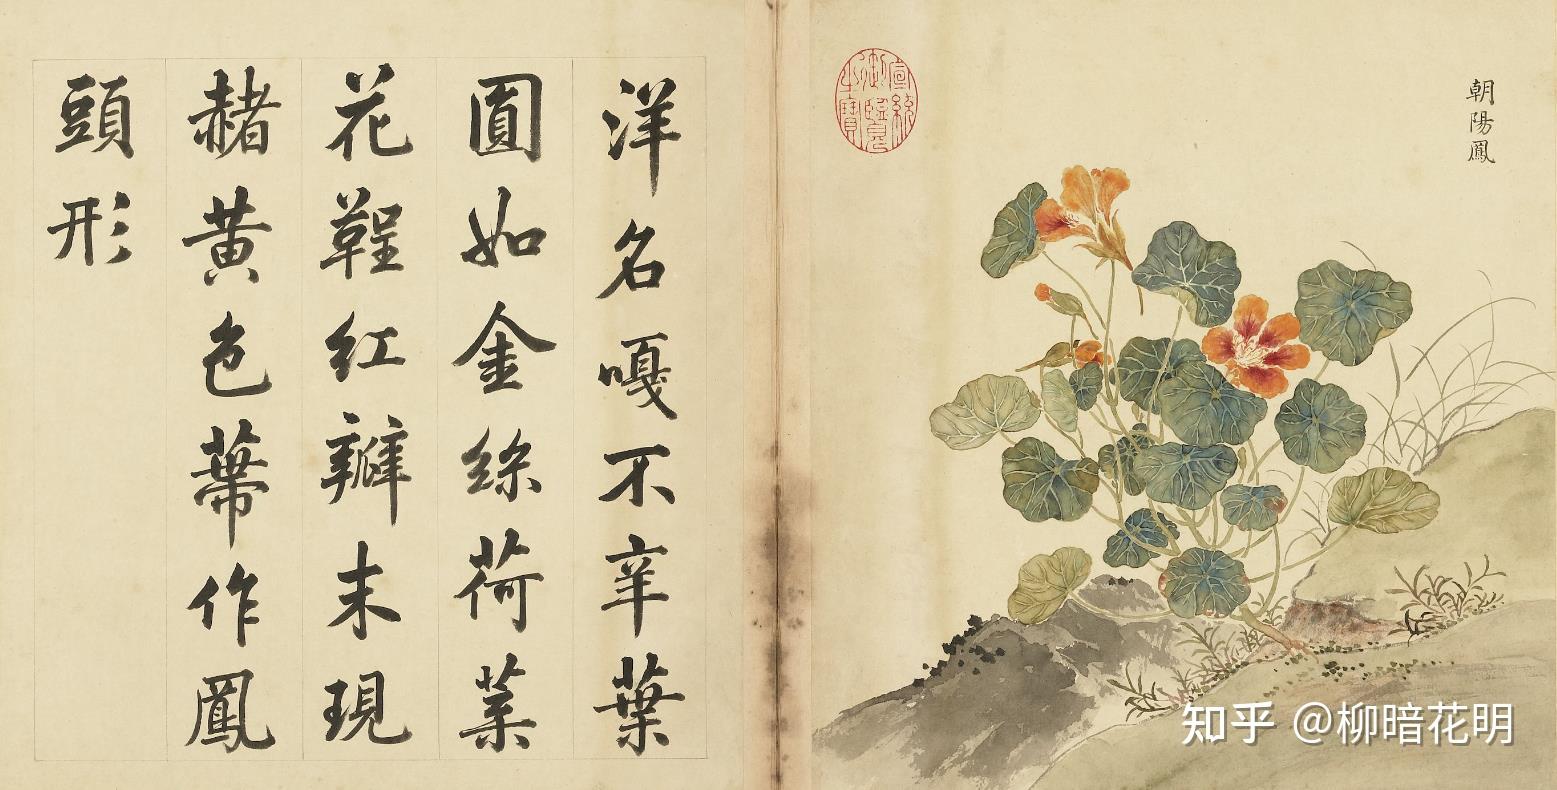 朝陽鳳
宣統
御覽
之寶
洋名嘎不辛葉
圓如金絲荷葉
花鞓紅瓣末現
赭黃色蒂作鳳
頭形
知乎 @柳暗花明